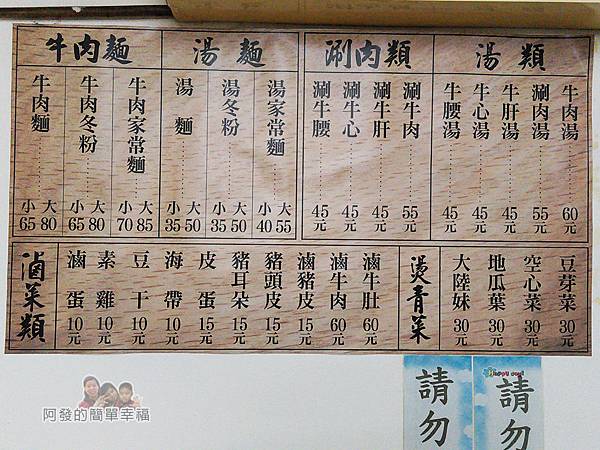 牛肉麵
牛肉麵 小65 大80
牛肉冬粉 小65 大80
牛肉家常麵 小70 大85
湯麵
湯麵 小35 大50
湯冬粉 小35 大50
湯家常麵 小40 大55
涮肉類
涮牛腰 45元
涮牛心 45元
涮牛肝 45元
涮牛肉 55元
湯類
牛腰湯 45元
牛心湯 45元
牛肝湯 45元
涮肉湯 55元
牛肉湯 60元
滷菜類
滷蛋 10元
素雞 10元
豆干 10元
海帶 10元
皮蛋 15元
豬耳朵 15元
豬頭皮 15元
滷豬皮 15元
滷牛肉 60元
滷牛肚 60元
燙青菜
大陸妹 30元
地瓜葉 30元
空心菜 30元
豆芽菜 30元
請勿
請勿
阿發的簡單幸福